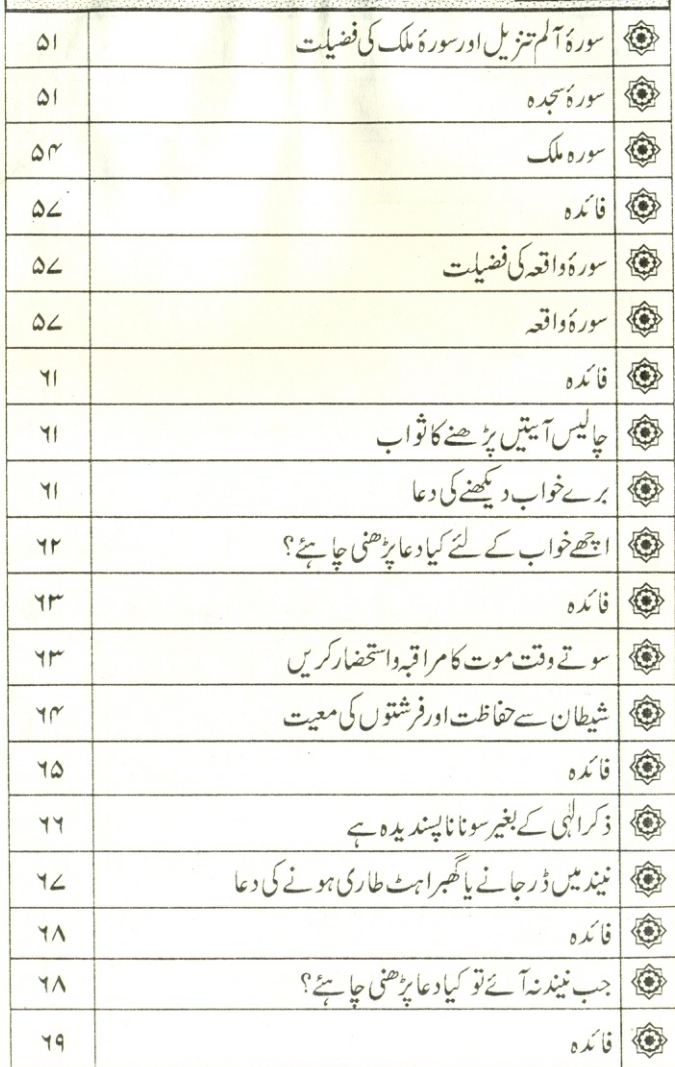 سورۂ آلم تنزیل اور سورۂ ملک کی فضیلت ۵۱
سورۂ سجدہ ۵۱
سورہ ملک ۵۴
فائدہ ۵۷
سورۂ واقعہ کی فضیلت ۵۷
سورۂ واقعہ ۵۷
فائدہ ۶۱
چالیس آیتیں پڑھنے کا ثواب ۶۱
برے خواب دیکھنے کی دعا ۶۱
اچھے خواب کے لئے کیا دعا پڑھنی چاہئے؟ ۶۲
فائدہ ۶۳
سوتے وقت موت کا مراقبہ و استحضار کریں ۶۳
شیطان سے حفاظت اور فرشتوں کی معیت ۶۴
فائدہ ۶۵
ذکر الٰہی کے بغیر سونا ناپسندیدہ ہے ۶۶
نیند میں ڈر جانے یا گھبراہٹ طاری ہونے کی دعا ۶۷
فائدہ ۶۸
جب نیند نہ آئے تو کیا دعا پڑھنی چاہئے؟ ۶۸
فائدہ ۶۹